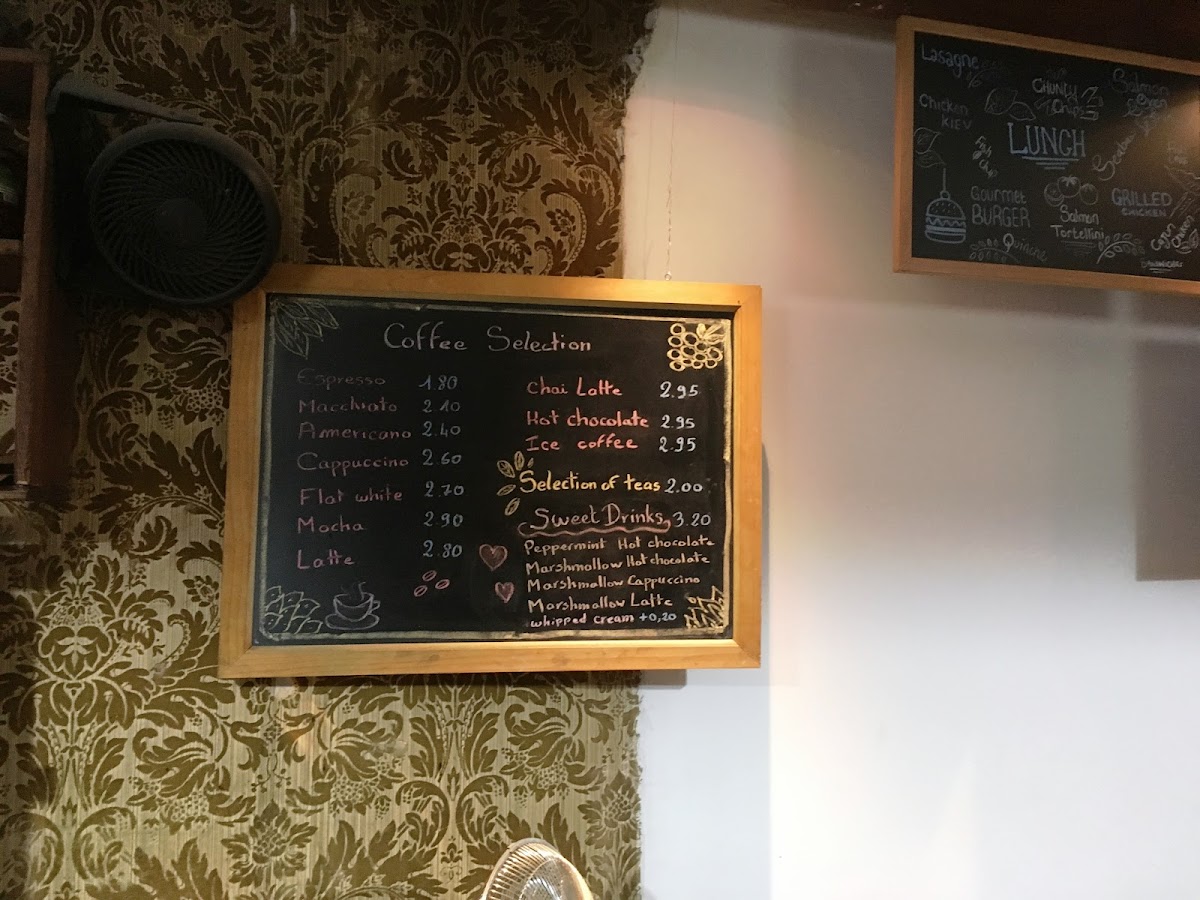 Coffee Selection
Espresso 1.80
Macchiato 2.10
Americano 2.40
Cappuccino 2.60
Flat white 2.70
Mocha 2.90
Latte 2.80
Chai Latte 2.95
Hot chocolate 2.95
Ice coffee 2.95
Selection of teas 2.00
Sweet Drinks 3.20
Peppermint Hot chocolate
Marshmallow Hot chocolate
Marshmallow Cappuccino
Marshmallow Latte
whipped cream +0,20
Lasagne
CHUNKY
Chips
Salmon
Oven
Chicken
KIEV
LUNCH
Fish
Gourmet
BURGER
Salmon
Tortellini
GRILLED
CHICKEN
Cajun
Chicken